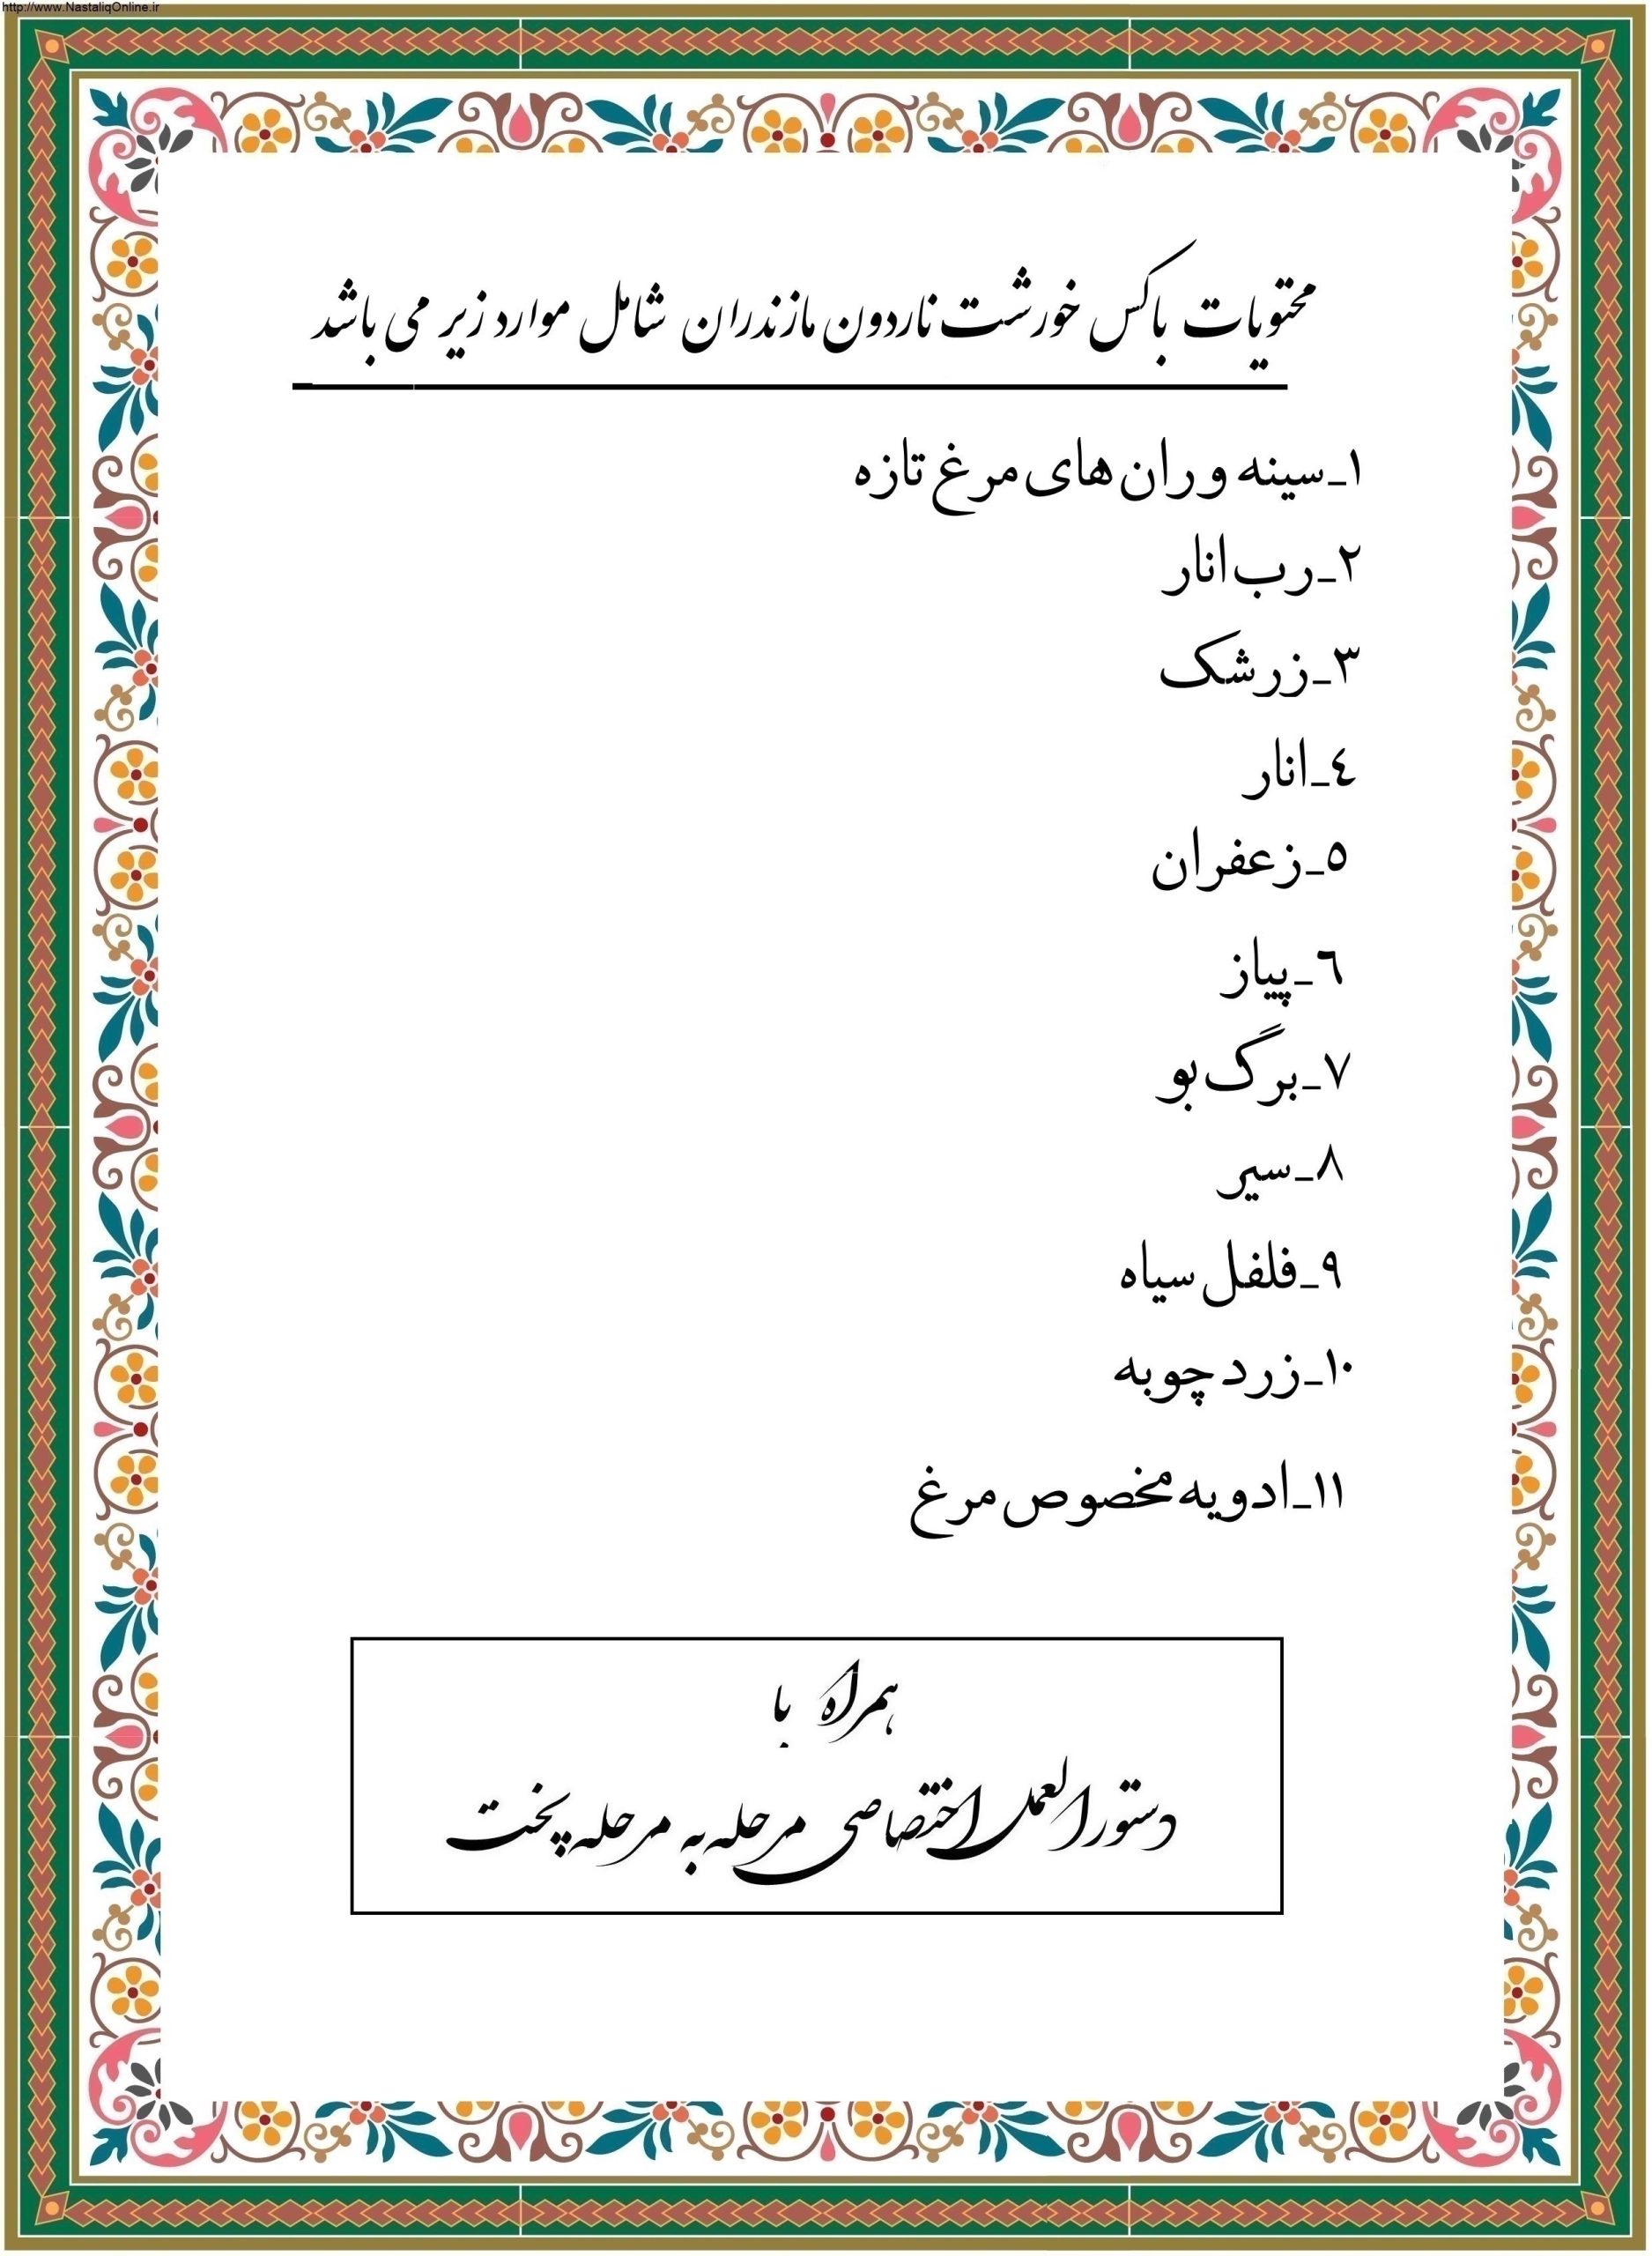 http://www.NastaliqOnline.ir
محتویات باکس خورشت ناردون مازندران شامل موارد زیر می باشد
۱_سینه و ران های مرغ تازه
۲_رب انار
۳_زرشک
٤_انار
٥_زعفران
٦_پیاز
۷_برگ بو
۸_سیر
۹_فلفل سیاه
۱۰_زردچوبه
۱۱_ادویه مخصوص مرغ
همراه با
دستورالعمل اختصاصی مرحله به مرحله پخت